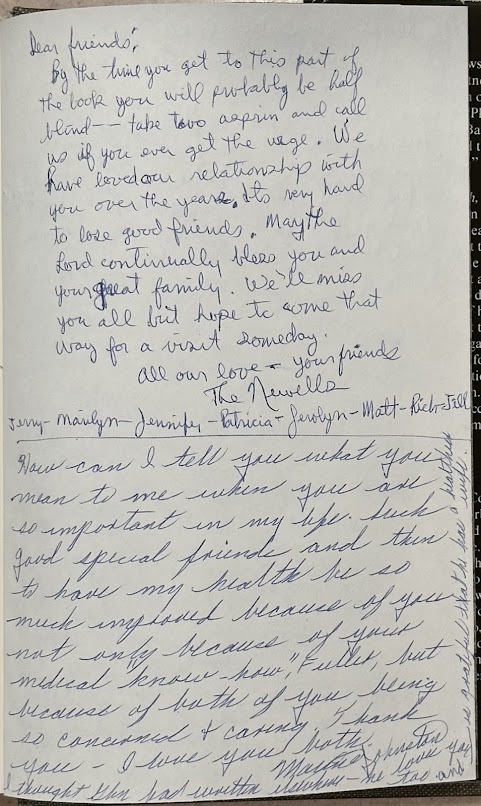 Dear friends,
By the time you get to this part of
the book you will probably be half
blind -- take two asprin and call
us if you ever get the urge. We
have loved our relationship with
you over the years. Its very hard
to lose good friends. May the
Lord continually bless you and
your great family. We'll miss
you all but hope to come that
way for a visit someday.
All our love - your friends
The Newells
Jerry - Marilyn - Jennifer - Patricia - Jerolyn - Matt - Rich - Jill
How can I tell you what you
mean to me when you are
so important in my life. Such
good special friends and then
to have my health be so
much improved because of you
not only because of your
medical "know-how", Fuller, but
because of both of you being
so concerned & caring. Thank
you - I love you both.
Johnston
I thought had written elsewhere - he loves you too and
is grateful that he has a healthier wife.